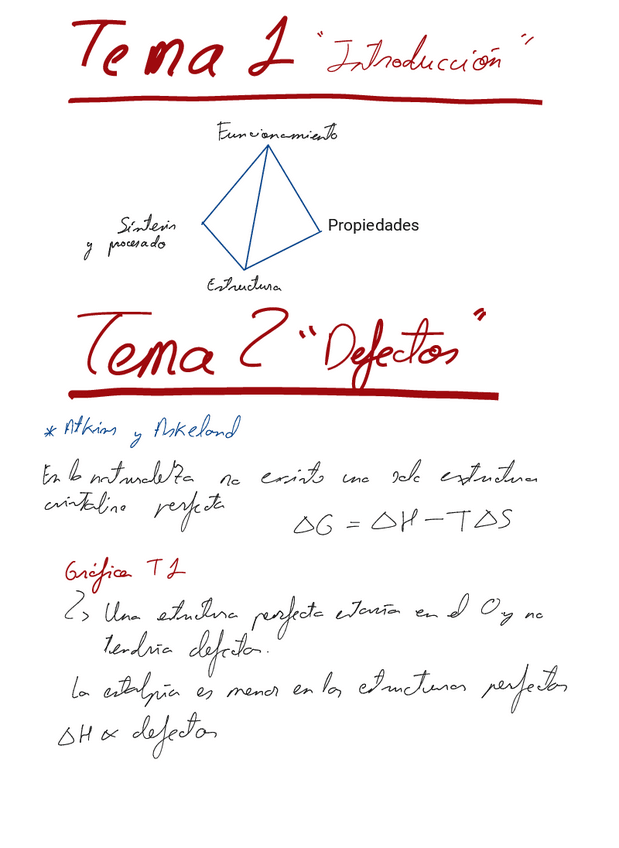 Tema 1 "Introducción"
Funcionamiento
Síntesis
y procesado
Propiedades
Estructura
Tema 2 "Defectos"
* Atkins y Askeland
En la naturaleza no existe una sola estructura
cristalina perfecta
ΔG = ΔH - TΔS
Gráfica T1
Una estructura perfecta estaría en el 0 y no
tendría defectos.
La entalpía es menor en las estructuras perfectas
ΔH ∝ defectos